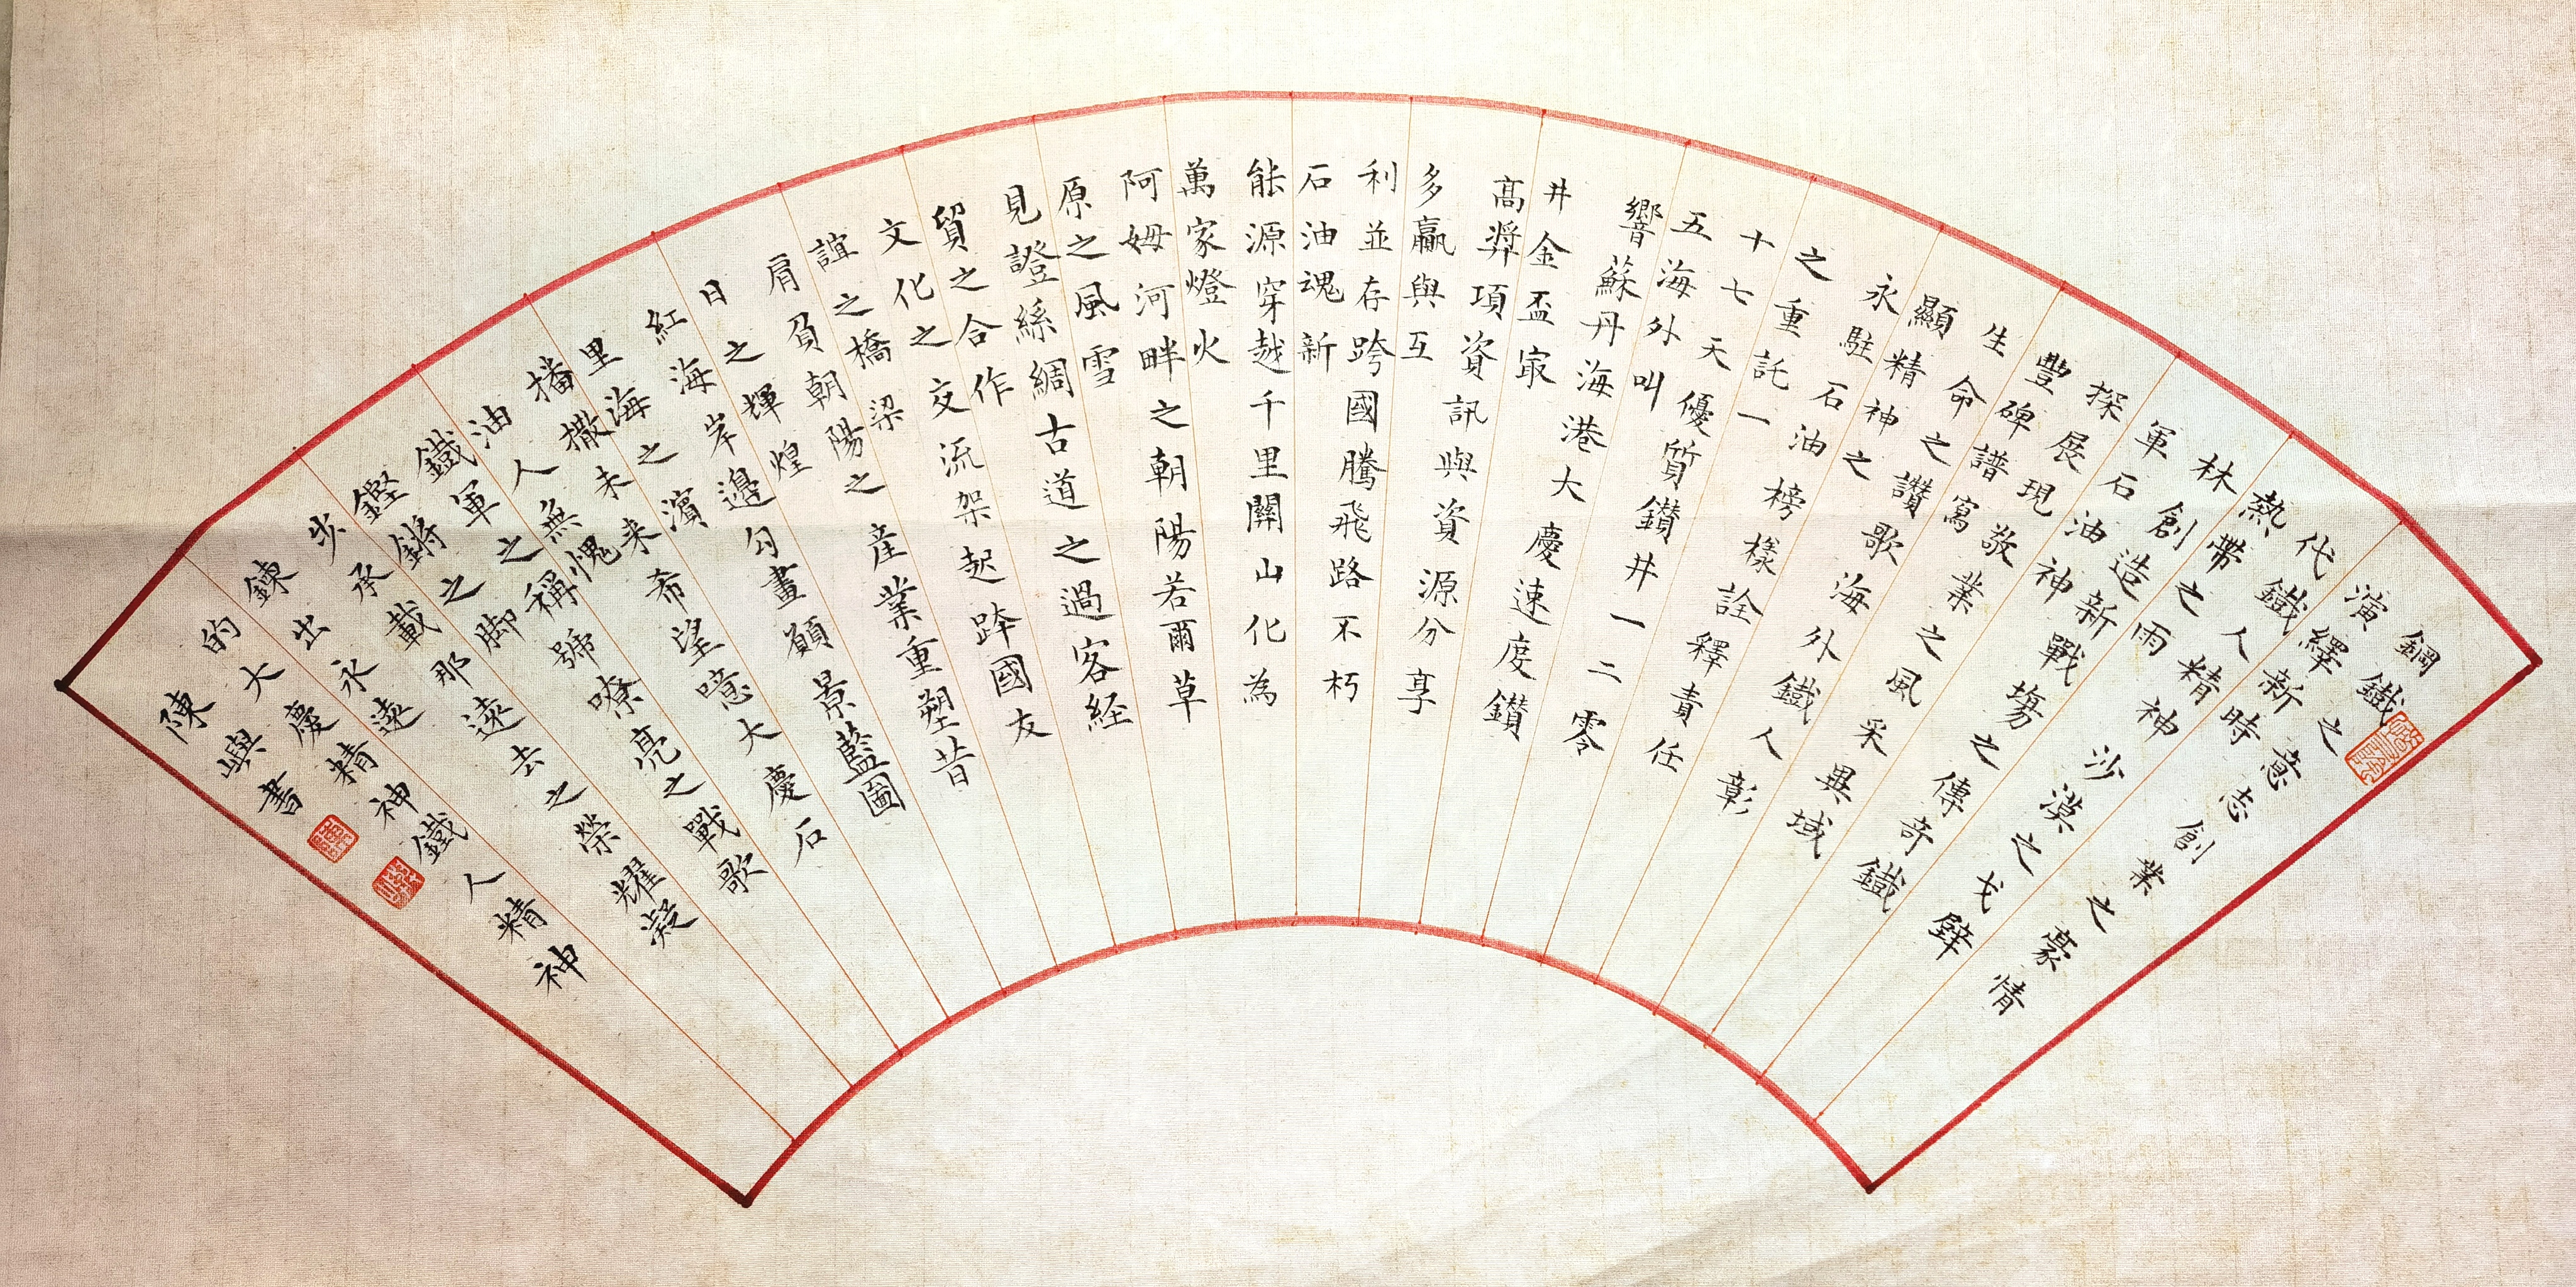 鋼鐵之意志創業之豪情
演繹新時
代鐵人精神沙漠之戈壁
熱帶之雨
林創造新戰場之傳奇鐵
軍石油神
探展現敬業之風采異域
豐碑譜寫
生命之讚歌海外鐵人彰
顯精神之
永駐石油榜樣詮釋責任
之重託一
十七天優質鑽井一二零
五海外叫
響蘇丹海港大慶速度鑽
井金盃冣
高獎項資訊與資源分享
多贏與互
利並存跨國騰飛路不朽
石油魂新
能源穿越千里關山化為
萬家燈火
阿姆河畔之朝陽若爾草
原之風雪
見證絲綢古道之過客経
貿之合作
文化之交流架起跨國友
誼之橋梁
肩負朝陽之産業重塑昔
日之輝煌
紅海岸邊勾畫願景藍圖
里海之濱
播撒未来希望噫大慶石
油人無愧
鐵軍之稱號嘹亮之戰歌
鏗鏘之脚
步承載那遠去之榮耀凝
鍊出永遠
的大慶精神鐵人精神
陳嶼書